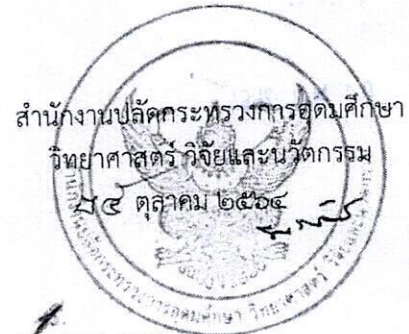 สำนักงานปลัดกระทรวงการอุดมศึกษา
วิทยาศาสตร์ วิจัยและนวัตกรรม
ตุลาคม ๒๕๖๔